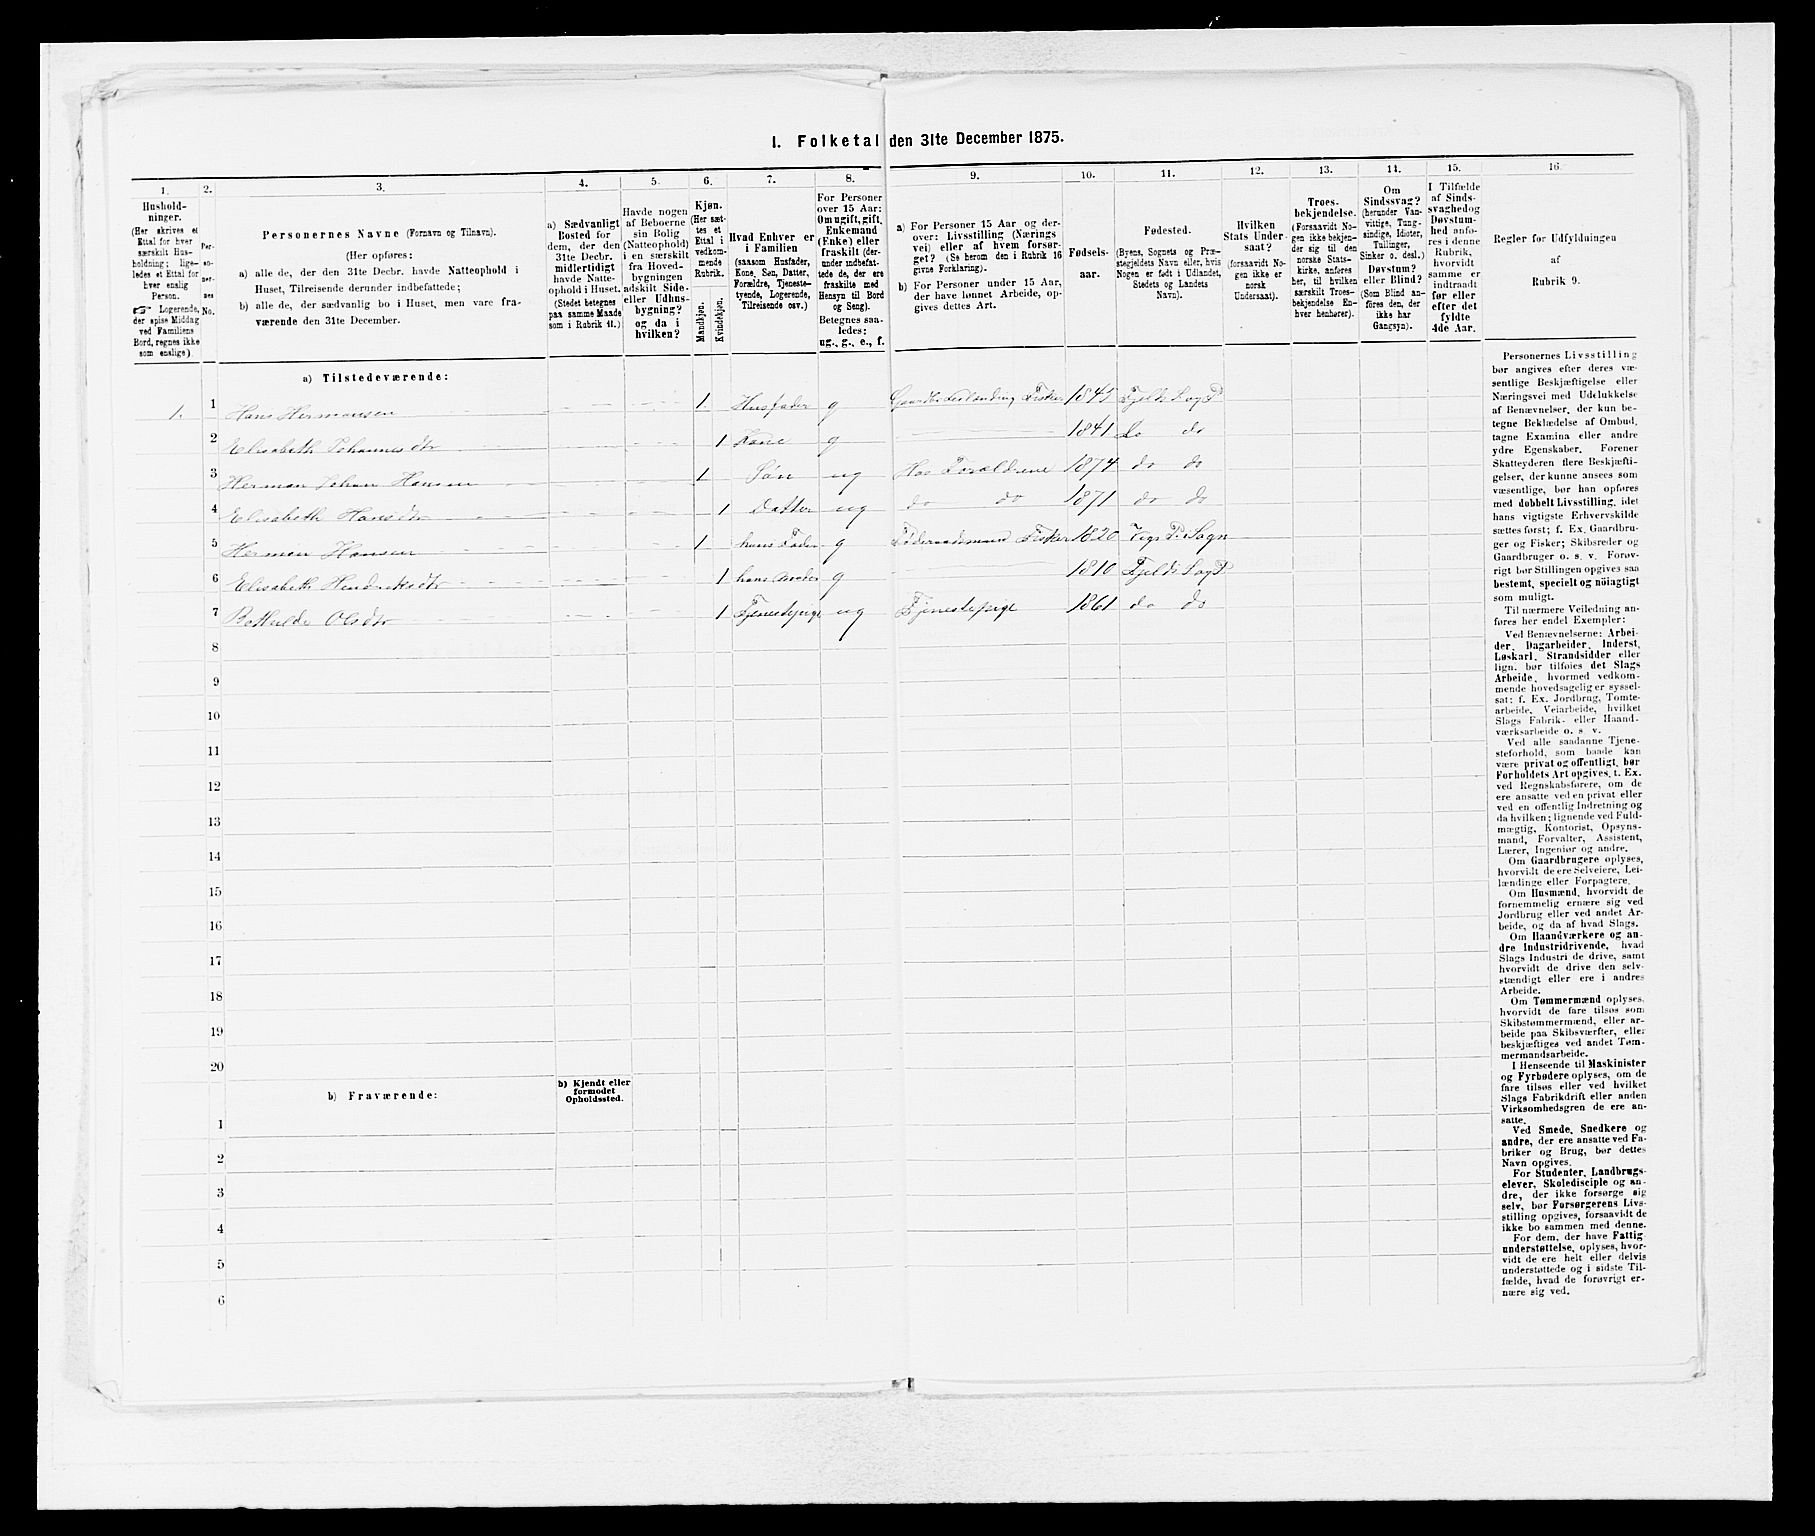 I. Folketal den 31te December 1875.
1. 2. 3. 4. 5. 6. 7. 8. 9. 10. 11. 12. 13. 14. 15. 16.
Hushold-
ninger.
(Her skrives et
Ettal for hver
særskilt Hus-
holdning; lige-
ledes et Ettal for
hver enslig
Person.
☞ Logerende,
der spise Middag
ved Familiens
Bord, regnes ikke
som enslige).
Per-
so-
ner-
nes
No.
Personernes Navne (Fornavn og Tilnavn).
(Her opføres:
a) alle de, der den 31te Decbr. havde Natteophold i
Huset, Tilreisende derunder indbefattede;
b) alle de, der sædvanlig bo i Huset, men vare fra-
værende den 31te December.
a) Sædvanligt
Bosted for
dem, der den
31te Decbr.
midlertidigt
havde Natte-
ophold i Huset.
(Stedet betegnes
paa samme Maade
som i Rubrik 11.)
Havde nogen
af Beboerne
sin Bolig
(Natteophold)
i en særskilt
fra Hoved-
bygningen
adskilt Side-
eller Udhus-
bygning?
og da i
hvilken?
Kjøn.
(Her sæt-
tes et
Ettal i
vedkom-
mende
Rubrik.
Mandkjøn.
Kvindekjøn.
Hvad Enhver er
i Familien
(saasom Husfader,
Kone, Søn, Datter,
Forældre, Tjeneste-
tyende, Logerende,
Tilreisende osv.)
For Personer
over 15 Aar:
Om ugift, gift,
Enkemand
(Enke) eller
fraskilt (der-
under indbefat-
tede de, der ere
fraskilte med
Hensyn til Bord
og Seng).
Betegnes saa-
ledes:
ug., g., e., f.
a) For Personer 15 Aar og der-
over: Livsstilling (Nærings
vei) eller af hvem forsør-
get? (Se herom den i Rubrik 16
givne Forklaring).
b) For Personer under 15 Aar,
der have lønnet Arbeide, op-
gives dettes Art.
Fødsels-
aar.
Fødested.
(Byens, Sognets og Præ-
stegjeldets Navn eller, hvis
Nogen er født i Udlandet,
Stedets og Landets
Navn).
Hvilken
Stats Under-
saat?
(forsaavidt No-
gen ikke er
norsk
Undersaat).
Troes-
bekjendelse.
(Forsaavidt No-
gen ikke bekjen-
der sig til den
norske Stats-
kirke, anføres
her, til hvilken
særskilt Troes-
bekjendelse En-
hver henhører).
Om
Sindssvag?
(herunder Van-
vittige, Tung-
sindige, Idioter,
Tullinger,
Sinker o. desl.)
Døvstum?
eller Blind?
(Som Blind an-
føres den, der
ikke har
Gangsyn).
I Tilfælde
af Sinds-
svaghed og
Døvstum-
hed anfø-
res i denne
Rubrik,
hvorvidt
samme er
indtraadt
før eller
efter det
fyldte
4de Aar.
Regler for Udfyldningen
af
Rubrik 9.
a) Tilstedeværende:
1. 1 Hans Hermansen 1 Husfader g Fisker 1845 Fjelds Sog P
2 Elisabeth Johannesdtr 1 Kone g 1841 do do
3 Herman Johan Hansen 1 Søn ug Hos Forældrene 1874 do do
4 Elisabeth Hansdtr 1 Datter ug do do 1871 do do
5 Herman Hansen 1 hans Fader g Føderaadsmand Fisker 1820 P. Sogn
6 Elisabeth Hendriksdtr 1 hans Moder g 1810 Fjelds Sog P
7 Bothilde Olsdtr 1 Tjenestepige ug Tjenestepige 1861 do do
8
9
10
11
12
13
14
15
16
17
18
19
20
b) Fraværende:
b) Kjendt eller
formodet
Opholdssted.
1
2
3
4
5
6
Personernes Livsstilling
bør angives efter deres væ-
sentlige Beskjæftigelse eller
Næringsvei med Udelukkelse
af Benævnelser, der kun be-
tegne Beklædelse af Ombud,
tagne Examina eller andre
ydre Egenskaber. Forener
Skatteyderen flere Beskjæfti-
gelser, der kunne ansees som
væsentlige, bør han opføres
med dobbelt Livsstilling, idet
hans vigtigste Erhvervskilde
sættes først; f. Ex. Gaardbru-
ger og Fisker; Skibsreder og
Gaardbruger o. s. v. Forøv-
rigt bør Stillingen opgives saa
bestemt, specielt og nöiagtigt
som muligt.
Til nærmere Veiledning an-
føres her endel Exempler:
Ved Benævnelserne: Arbei-
der, Dagarbeider, Inderst,
Løskarl, Strandsidder eller
lign. bør tilføies det Slags
Arbeide, hvormed vedkom-
mende hovedsagelig er syssel-
sat; f. Ex. Jordbrug, Tomte-
arbeide, Veiarbeide, hvilket
Slags Fabrik- eller Haand-
værksarbeide o. s. v.
Ved alle saadanne Tjene-
steforhold, som baade kan
være privat og offentligt, bør
Forholdets Art opgives, t. Ex.
ved Regnskabsførere, om de
ere ansatte ved en privat eller
ved en offentlig Indretning og
da hvilken; lignende ved Fuld-
mægtig, Kontorist, Opsyns-
mand, Forvalter, Assistent,
Lærer, Ingeniør og andre.
Om Gaardbrugere oplyses,
hvorvidt de ere Selveiere, Lei-
lændinge eller Forpagtere.
Om Husmænd, hvorvidt de
fornemmelig ernære sig ved
Jordbrug eller ved andet Ar-
beide, og da af hvad Slags.
Om Haandværkere og an-
dre Industridrivende, hvad
Slags Industri de drive, samt
hvorvidt de drive den selv-
stændigt eller ere i andres
Arbeide.
Om Tømmermænd oplyses,
hvorvidt de fare tilsøs som
Skibstømmermænd, eller ar-
beide paa Skibsværfter, eller
beskjæftiges ved andet Tøm-
mermandsarbeide.
I Henseende til Maskinister
og Fyrbødere oplyses, om de
fare tilsøs eller ved hvilket
Slags Fabrikdrift eller anden
Virksomhedsgren de ere an-
satte.
Ved Smede, Snedkere og
andre, der ere ansatte ved Fa-
briker og Brug, bør dettes
Navn opgives.
For Studenter, Landbrugs-
elever, Skoledisciple og an-
dre, der ikke forsørge sig
selv, bør Forsørgerens Livs-
stilling opgives, forsaavidt de
ikke bo sammen med denne.
For dem, der have Fattig-
understøttelse, oplyses, hvor-
vidt de ere helt eller delvis
understøttede og i sidste Til-
fælde, hvad de forøvrigt er-
nære sig ved.